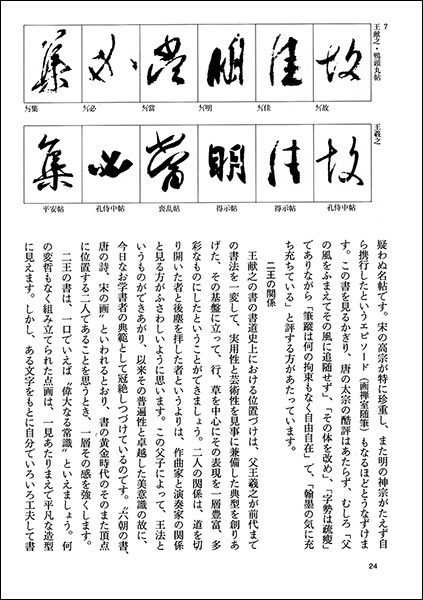 7
王献之・鴨頭丸帖
故
佳
明
當
必
集
王羲之
孔侍中帖
得示帖
得示帖
喪乱帖
孔侍中帖
平安帖
疑わぬ名帖です。宋の高宗が特に珍重し、また明の神宗がたえず自
ら携行したというエピソード(画禅室随筆)もなるほどとうなずけま
す。この書を見るかぎり、唐の太宗の酷評はあたらず、むしろ「父
の風をふまえてその風に追随せず」、「その体を改め」、「字勢は疏痩」
でありながら「筆蹤は何の拘束もなく自由自在」で、「翰墨の気に充
ち充ちている」と評する方があたっています。
二王の関係
王献之の書の書道史上における位置づけは、父王羲之が前代まで
の書法を一変して、実用性と芸術性を見事に兼備した典型を創りあ
げた、その基盤に立って、行、草を中心にその表現を一層豊富、多
彩なものにしたということができましょう。二人の関係は、道を切
り開いた者と後塵を拝した者というよりは、作曲家と演奏家の関係
と見る方がふさわしいように思います。この父子によって、王法と
いうものができあがり、以来その普遍性と卓越した美意識の故に、
今日なお学書者の典範として冠絶しつづけているのです。〝六朝の書、
唐の詩、宋の画〟といわれるとおり、書の黄金時代のそのまた頂点
に位置する二人であることを思うとき、一層その感を強くします。
二王の書は、一口でいえば〝偉大なる常識〟といえましょう。何
の変哲もなく組み立てられた点画は、一見あたりまえで平凡な造型
に見えます。しかし、ある文字をもとに自分でいろいろ工夫して書
24